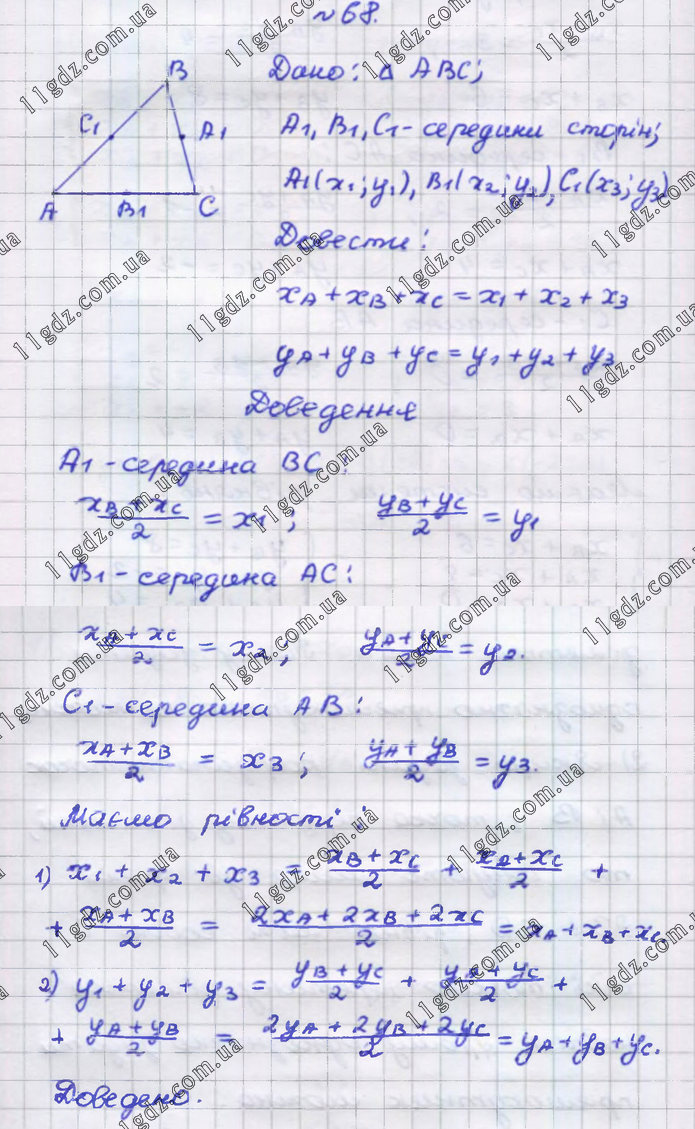 №68.
Дано: Δ ABC;
B
C1
A1
A
B1
C
A1, B1, C1 - середини сторін;
A1(x1; y1), B1(x2; y2), C1(x3; y3)
Довести:
xA + xB + xC = x1 + x2 + x3
yA + yB + yC = y1 + y2 + y3
Доведення
A1 - середина BC:
(xB + xC)/2 = x1; (yB + yC)/2 = y1
B1 - середина AC:
(xA + xC)/2 = x2; (yA + yC)/2 = y2.
C1 - середина AB:
(xA + xB)/2 = x3; (yA + yB)/2 = y3.
Маємо рівності:
1) x1 + x2 + x3 = (xB + xC)/2 + (xA + xC)/2 +
+ (xA + xB)/2 = (2xA + 2xB + 2xC)/2 = xA + xB + xC.
2) y1 + y2 + y3 = (yB + yC)/2 + (yA + yC)/2 +
+ (yA + yB)/2 = (2yA + 2yB + 2yC)/2 = yA + yB + yC.
Доведено.
11gdz.com.ua